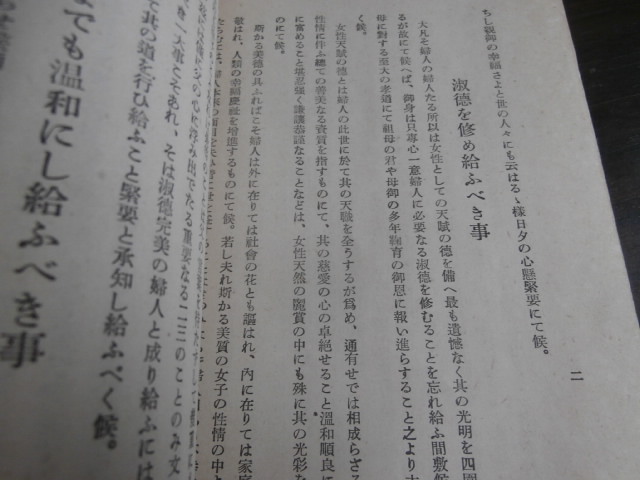 ちし親御の幸福さよと世の人々にも云はるゝ樣日夕の心懸緊要にて候。
二
淑德を修め給ふべき事
大凡そ婦人の婦人たる所以は女性としての天賦の德を備へ最も遺憾なく其の光明を四圍
るが故にて候へば、御身は只專心一意婦人に必要なる淑德を修むることを忘れ給ふ間敷候
母に對する至大の孝道にて祖母の君や母御の多年鞠育の御恩に報い進らすること之より
く候。
女性天賦の德とは婦人の此世に於て其の天職を全うするが爲め、通有せでは相成らざる
性情に伴ふ總ての善美なる資質を指すものにて、其の慈愛の心の卓絶せること溫和順良に
に富めること堪忍強く謙讓恭謹なることなどは、女性天然の麗質の中にも殊に其の光彩な
のにて候。
斯かる美德の具ふればこそ婦人は外に在りては社會の花とも謳はれ、內に在りては家庭
敬はれ、人類の幸福慶祉を增進するものにて候。若し夫れ斯かる美質の女子の性情の中
の心に浮み出でたる重要なる二三のことのみ文
一大事とそあれ、そは淑德完美の婦人と成り給ふには
て此の道を行ひ給ふこと緊要と承知し給ふべく候。
までも溫和にし給ふべき事